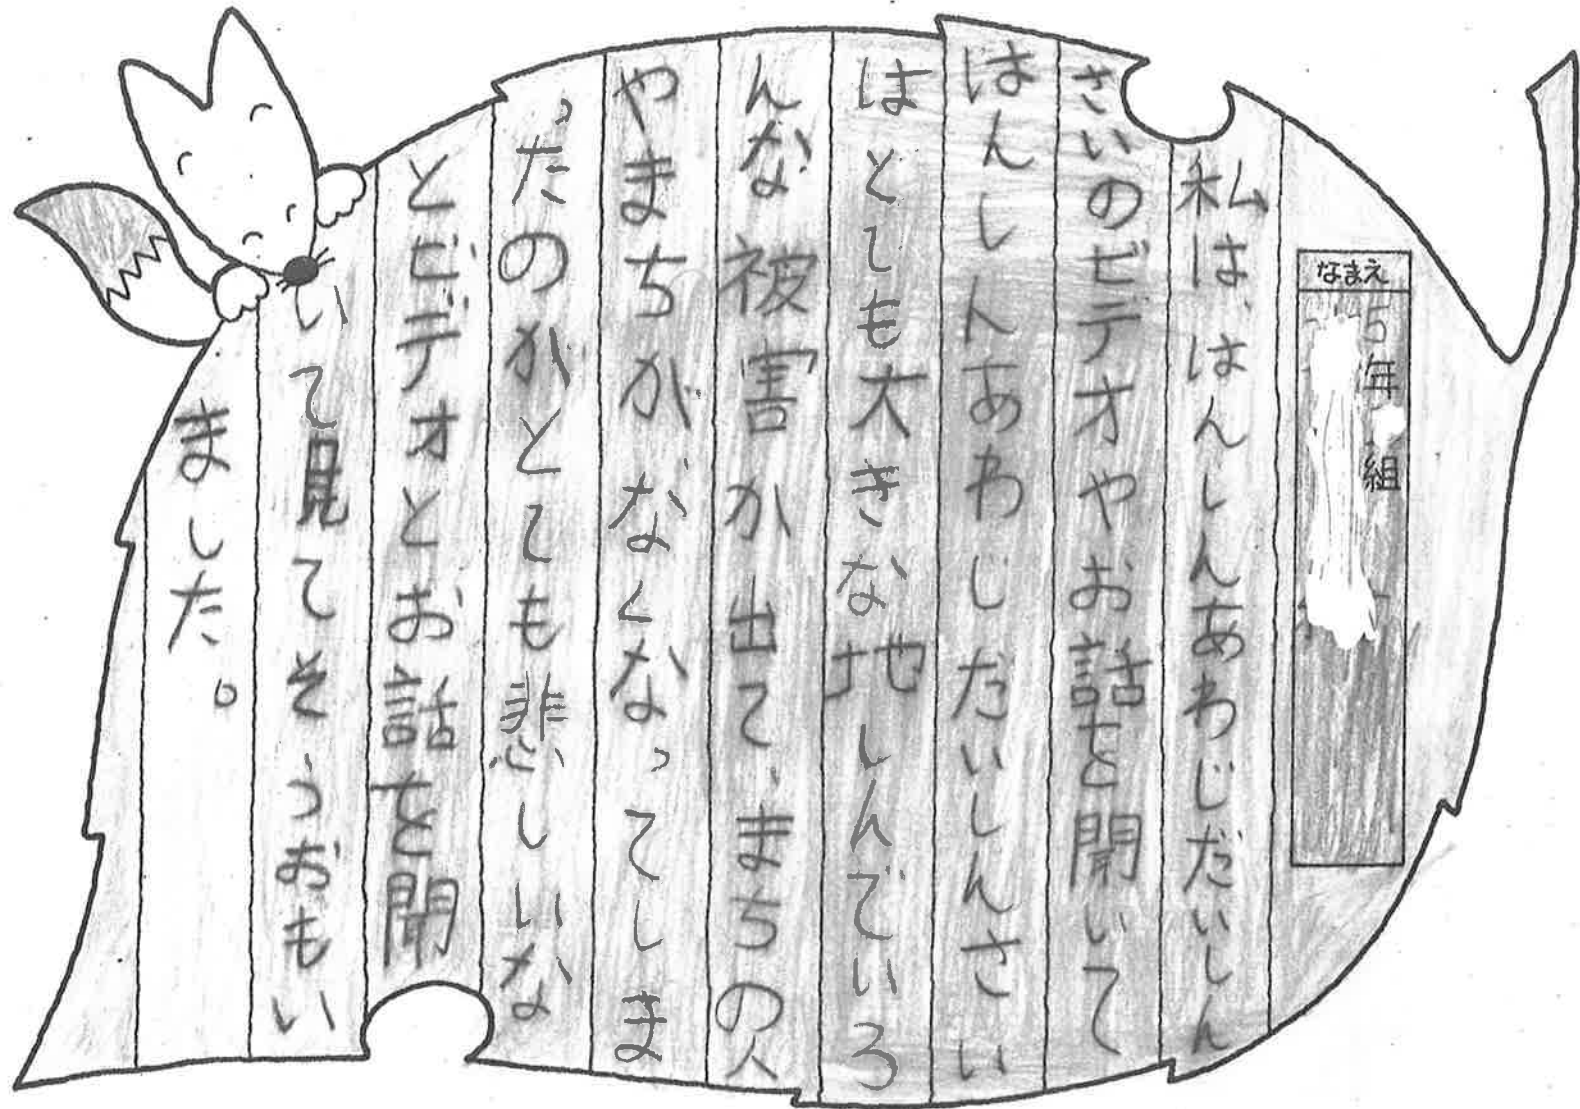 なまえ
5年 組
私は、はんしんあわじだいしん
さいのビデオやお話を聞いて
はんしんあわじだいしんさい
はとても大きな地しんでいろ
んな被害か出て、まちの人
やまちがなくなってしま
ったのがとても悲しいな
とビデオとお話を聞
いて見てそうおもい
ました。